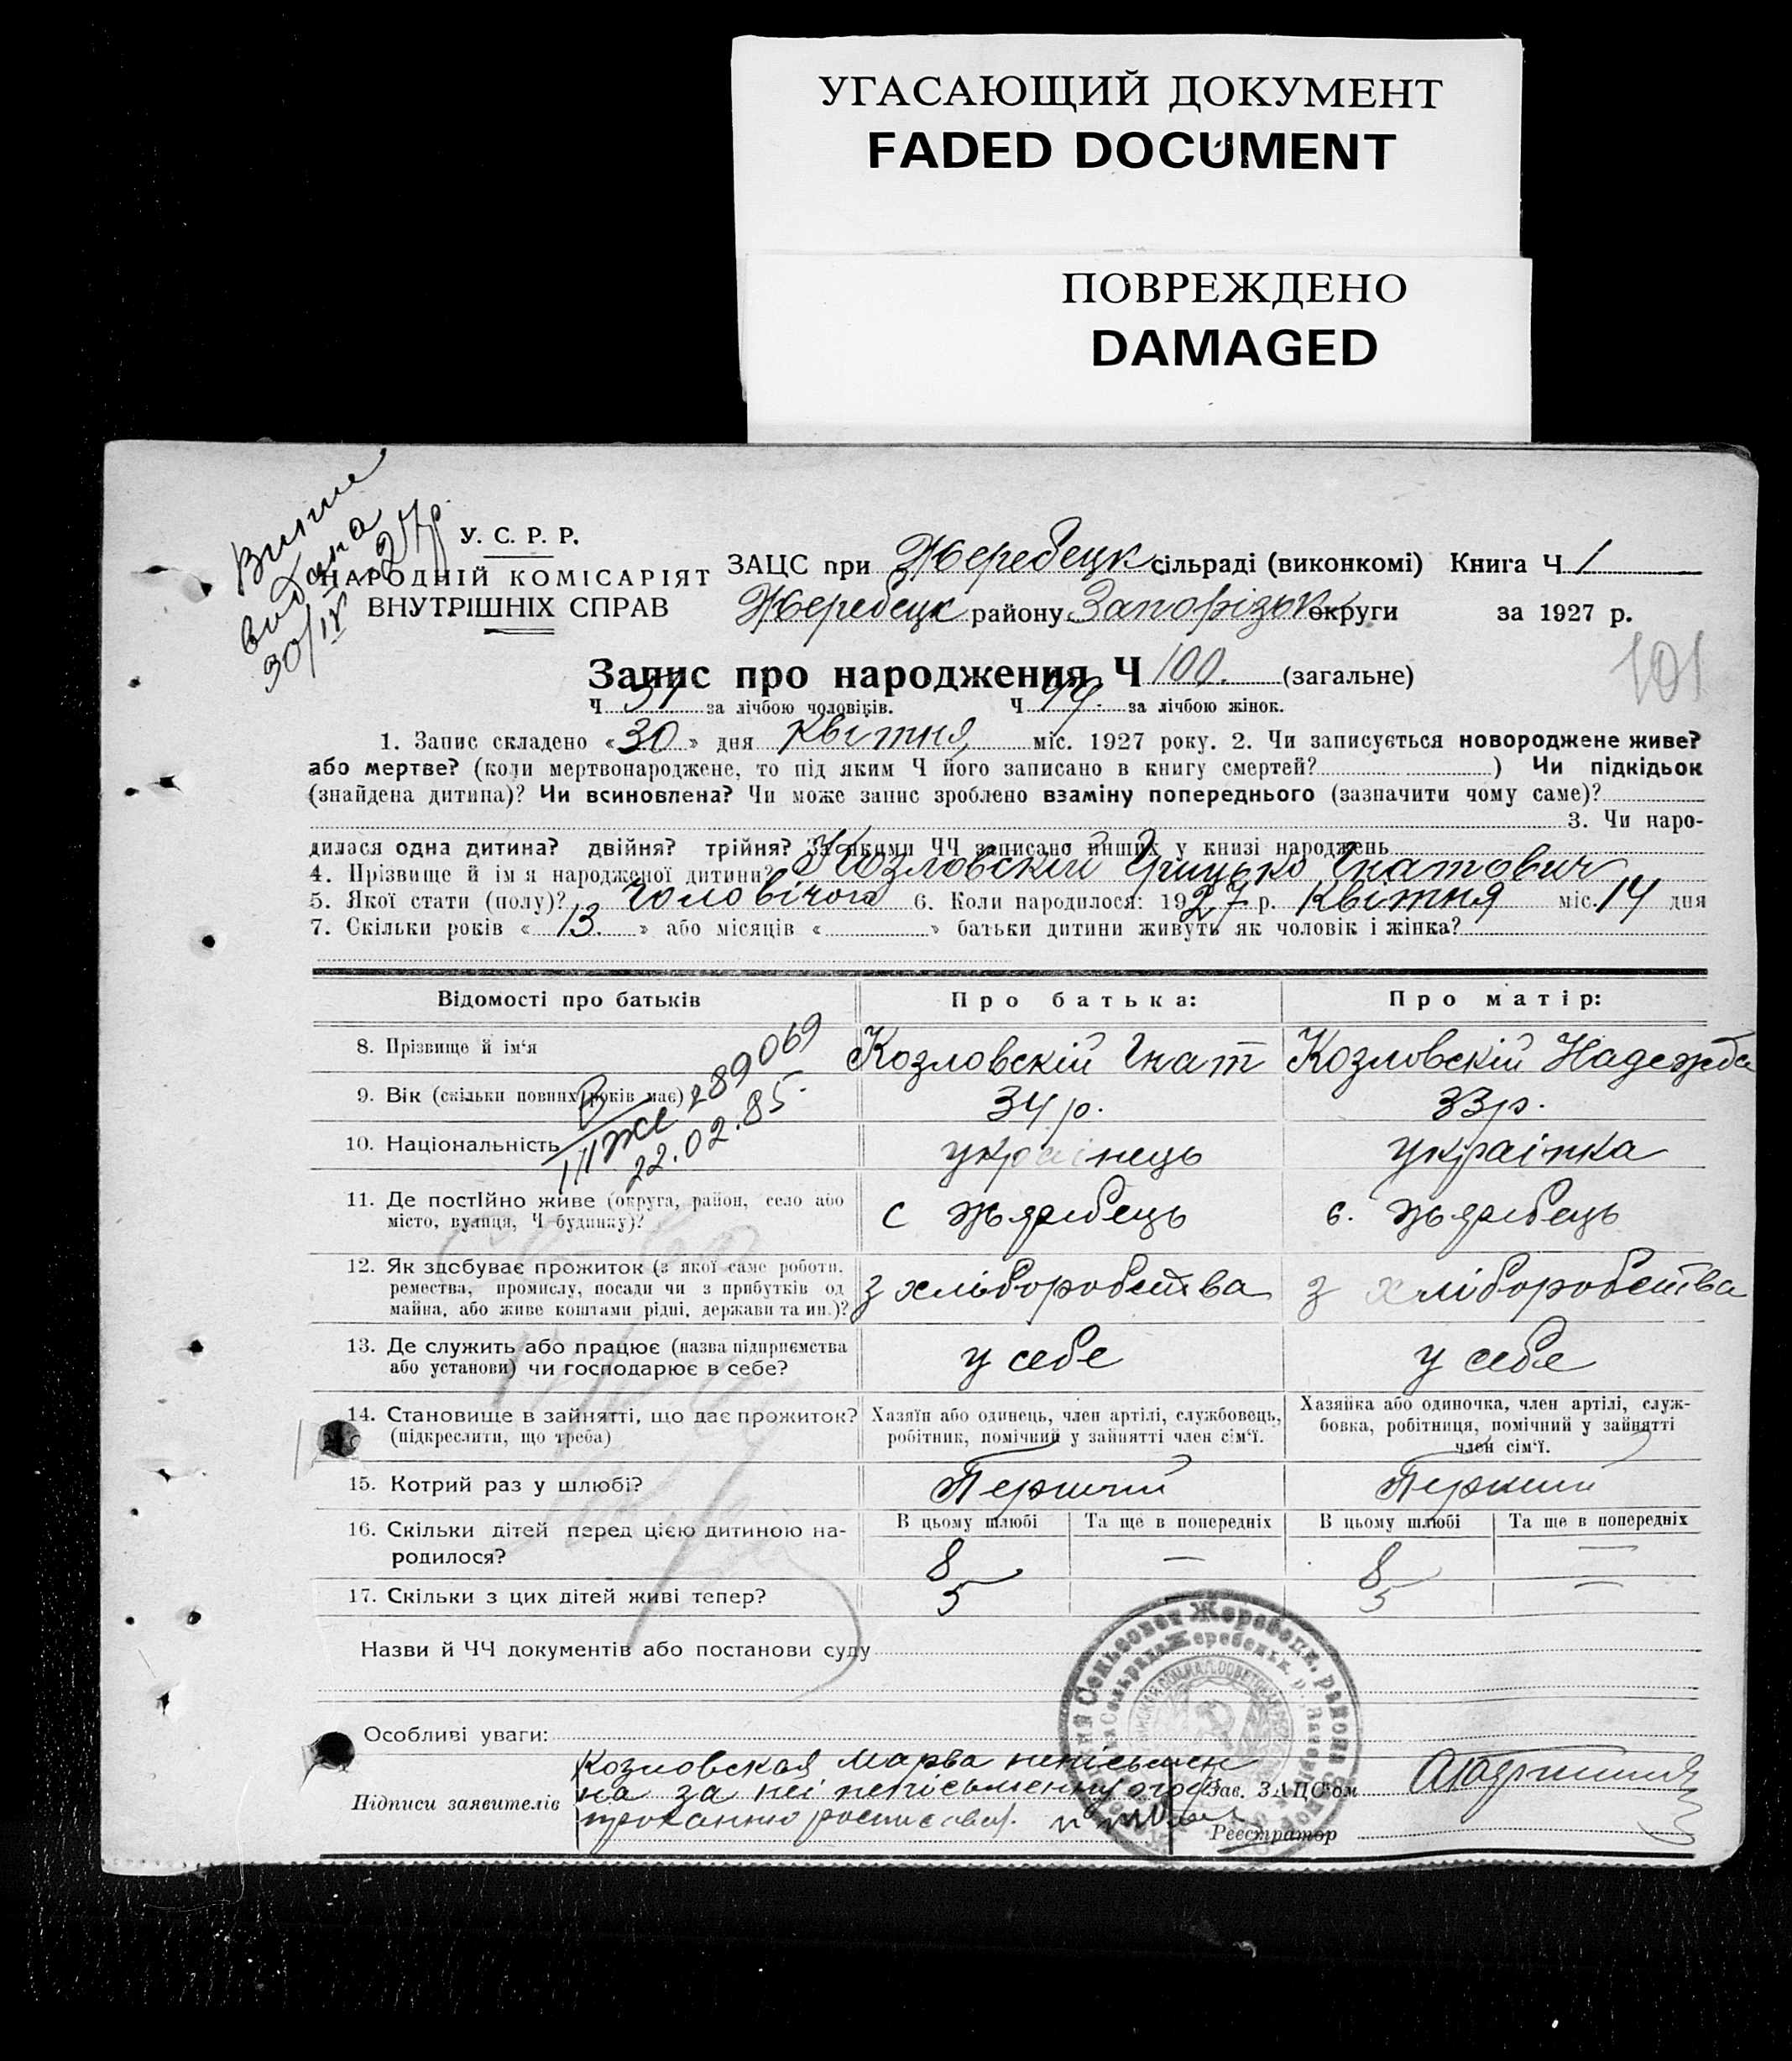 УГАСАЮЩИЙ ДОКУМЕНТ
FADED DOCUMENT
ПОВРЕЖДЕНО
DAMAGED
Випис
видана
30/IV 27р.
У. С. Р. Р.
НАРОДНІЙ КОМІСАРІЯТ
ВНУТРІШНІХ СПРАВ
ЗАЦС при Жеребецк сільраді (виконкомі) Книга Ч 1
Жеребецк району Запорізьк округи за 1927 р.
101
Запис про народження Ч 100. (загальне)
Ч за лічбою чоловіків. Ч за лічбою жінок.
1. Запис складено «30» дня Квітня, міс. 1927 року. 2. Чи записується новороджене живе?
або мертве? (коли мертвонароджене, то під яким Ч його записано в книгу смертей? ) Чи підкідьок
(знайдена дитина)? Чи всиновлена? Чи може запис зроблено взаміну попереднього (зазначити чому саме)?
3. Чи наро-
дилася одна дитина? двійня? трійня? За якими ЧЧ записано инших у книзі народжень
4. Прізвище й ім я народженої дитини? Козловскій Грицько Гнатович
5. Якої стати (полу)? Чоловічога 6. Коли народилося: 1927 р. Квітня міс. 14 дня
7. Скільки років « 13. » або місяців « » батьки дитини живуть як чоловік і жінка?
Відомості про батьків Про батька: Про матір:
8. Прізвище й ім‘я Козловскій Гнат Козловскій Надежда
9. Вік (скільки повних років має) 34 р. 33 р.
289069
22.02.85.
10. Національність українець українка
11. Де постійно живе (округа, район, село або
місто, вулиця, Ч будинку)? с жярібець с. жярібець
12. Як здобуває прожиток (з якої саме роботи,
ремества, промислу, посади чи з прибутків од
майна, або живе коштами рідні, держави та ин.)? з хліборобства з хліборобства
13. Де служить або працює (назва підприємства
або установи) чи господарює в себе? у себе у себе
14. Становище в зайнятті, що дає прожиток?
(підкреслити, що треба)
Хазяїн або одинець, член артілі, службовець,
робітник, помічний у зайнятті член сім‘ї.
Хазяйка або одиночка, член артілі, служ-
бовка, робітниця, помічний у зайнятті
член сім‘ї.
15. Котрий раз у шлюбі? Перший Перший
16. Скільки дітей перед цією дитиною на-
родилося?
В цьому шлюбі Та ще в попередніх В цьому шлюбі Та ще в попередніх
8 — 8 —
17. Скільки з цих дітей живі тепер? 5 5 —
Назви й ЧЧ документів або постанови суду
Особливі уваги:
Підписи заявителів
Козловская Марва непісьмен
на за неі непісьменну
Зав. ЗАЦС‘ом
Реєстратор